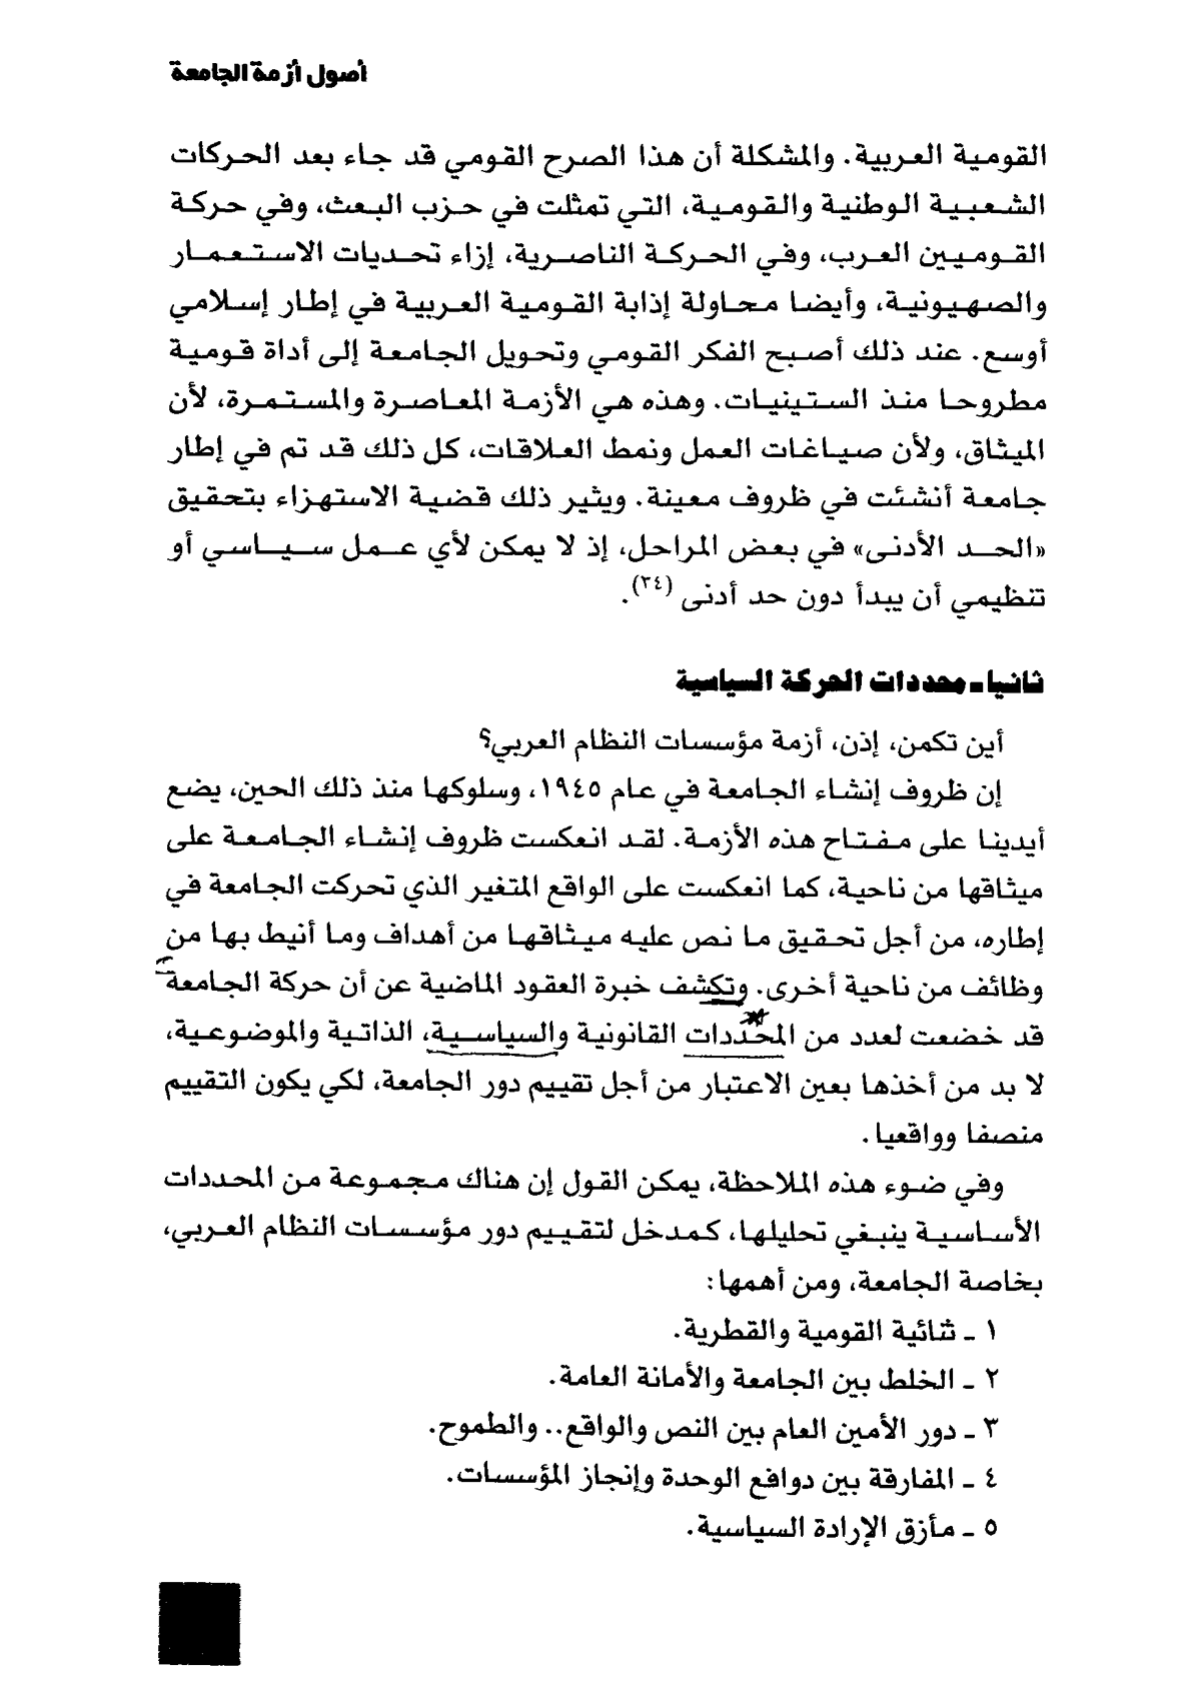 أصول أزمة الجامعة
القومية العربية. والمشكلة أن هذا الصرح القومي قد جاء بعد الحركات
الشعبية الوطنية والقومية، التي تمثلت في حزب البعث، وفي حركة
القوميين العرب، وفي الحركة الناصرية، إزاء تحديات الاستعمار
والصهيونية، وأيضا محاولة إذابة القومية العربية في إطار إسلامي
أوسع. عند ذلك أصبح الفكر القومي وتحويل الجامعة إلى أداة قومية
مطروحا منذ الستينيات. وهذه هي الأزمة المعاصرة والمستمرة، لأن
الميثاق، ولأن صياغات العمل ونمط العلاقات، كل ذلك قد تم في إطار
جامعة أنشئت في ظروف معينة. ويثير ذلك قضية الاستهزاء بتحقيق
«الحد الأدنى» في بعض المراحل، إذ لا يمكن لأي عمل سياسي أو
تنظيمي أن يبدأ دون حد أدنى (٢٤).
ثانيا ـ محددات الحركة السياسية
أين تكمن، إذن، أزمة مؤسسات النظام العربي؟
إن ظروف إنشاء الجامعة في عام ١٩٤٥، وسلوكها منذ ذلك الحين، يضع
أيدينا على مفتاح هذه الأزمة. لقد انعكست ظروف إنشاء الجامعة على
ميثاقها من ناحية، كما انعكست على الواقع المتغير الذي تحركت الجامعة في
إطاره، من أجل تحقيق ما نص عليه ميثاقها من أهداف وما أنيط بها من
وظائف من ناحية أخرى. وتكشف خبرة العقود الماضية عن أن حركة الجامعة
قد خضعت لعدد من المحددات القانونية والسياسية، الذاتية والموضوعية،
لا بد من أخذها بعين الاعتبار من أجل تقييم دور الجامعة، لكي يكون التقييم
منصفا وواقعيا.
وفي ضوء هذه الملاحظة، يمكن القول إن هناك مجموعة من المحددات
الأساسية ينبغي تحليلها، كمدخل لتقييم دور مؤسسات النظام العربي،
بخاصة الجامعة، ومن أهمها:
١ ـ ثنائية القومية والقطرية.
٢ ـ الخلط بين الجامعة والأمانة العامة.
٣ ـ دور الأمين العام بين النص والواقع.. والطموح.
٤ ـ المفارقة بين دوافع الوحدة وإنجاز المؤسسات.
٥ ـ مأزق الإرادة السياسية.